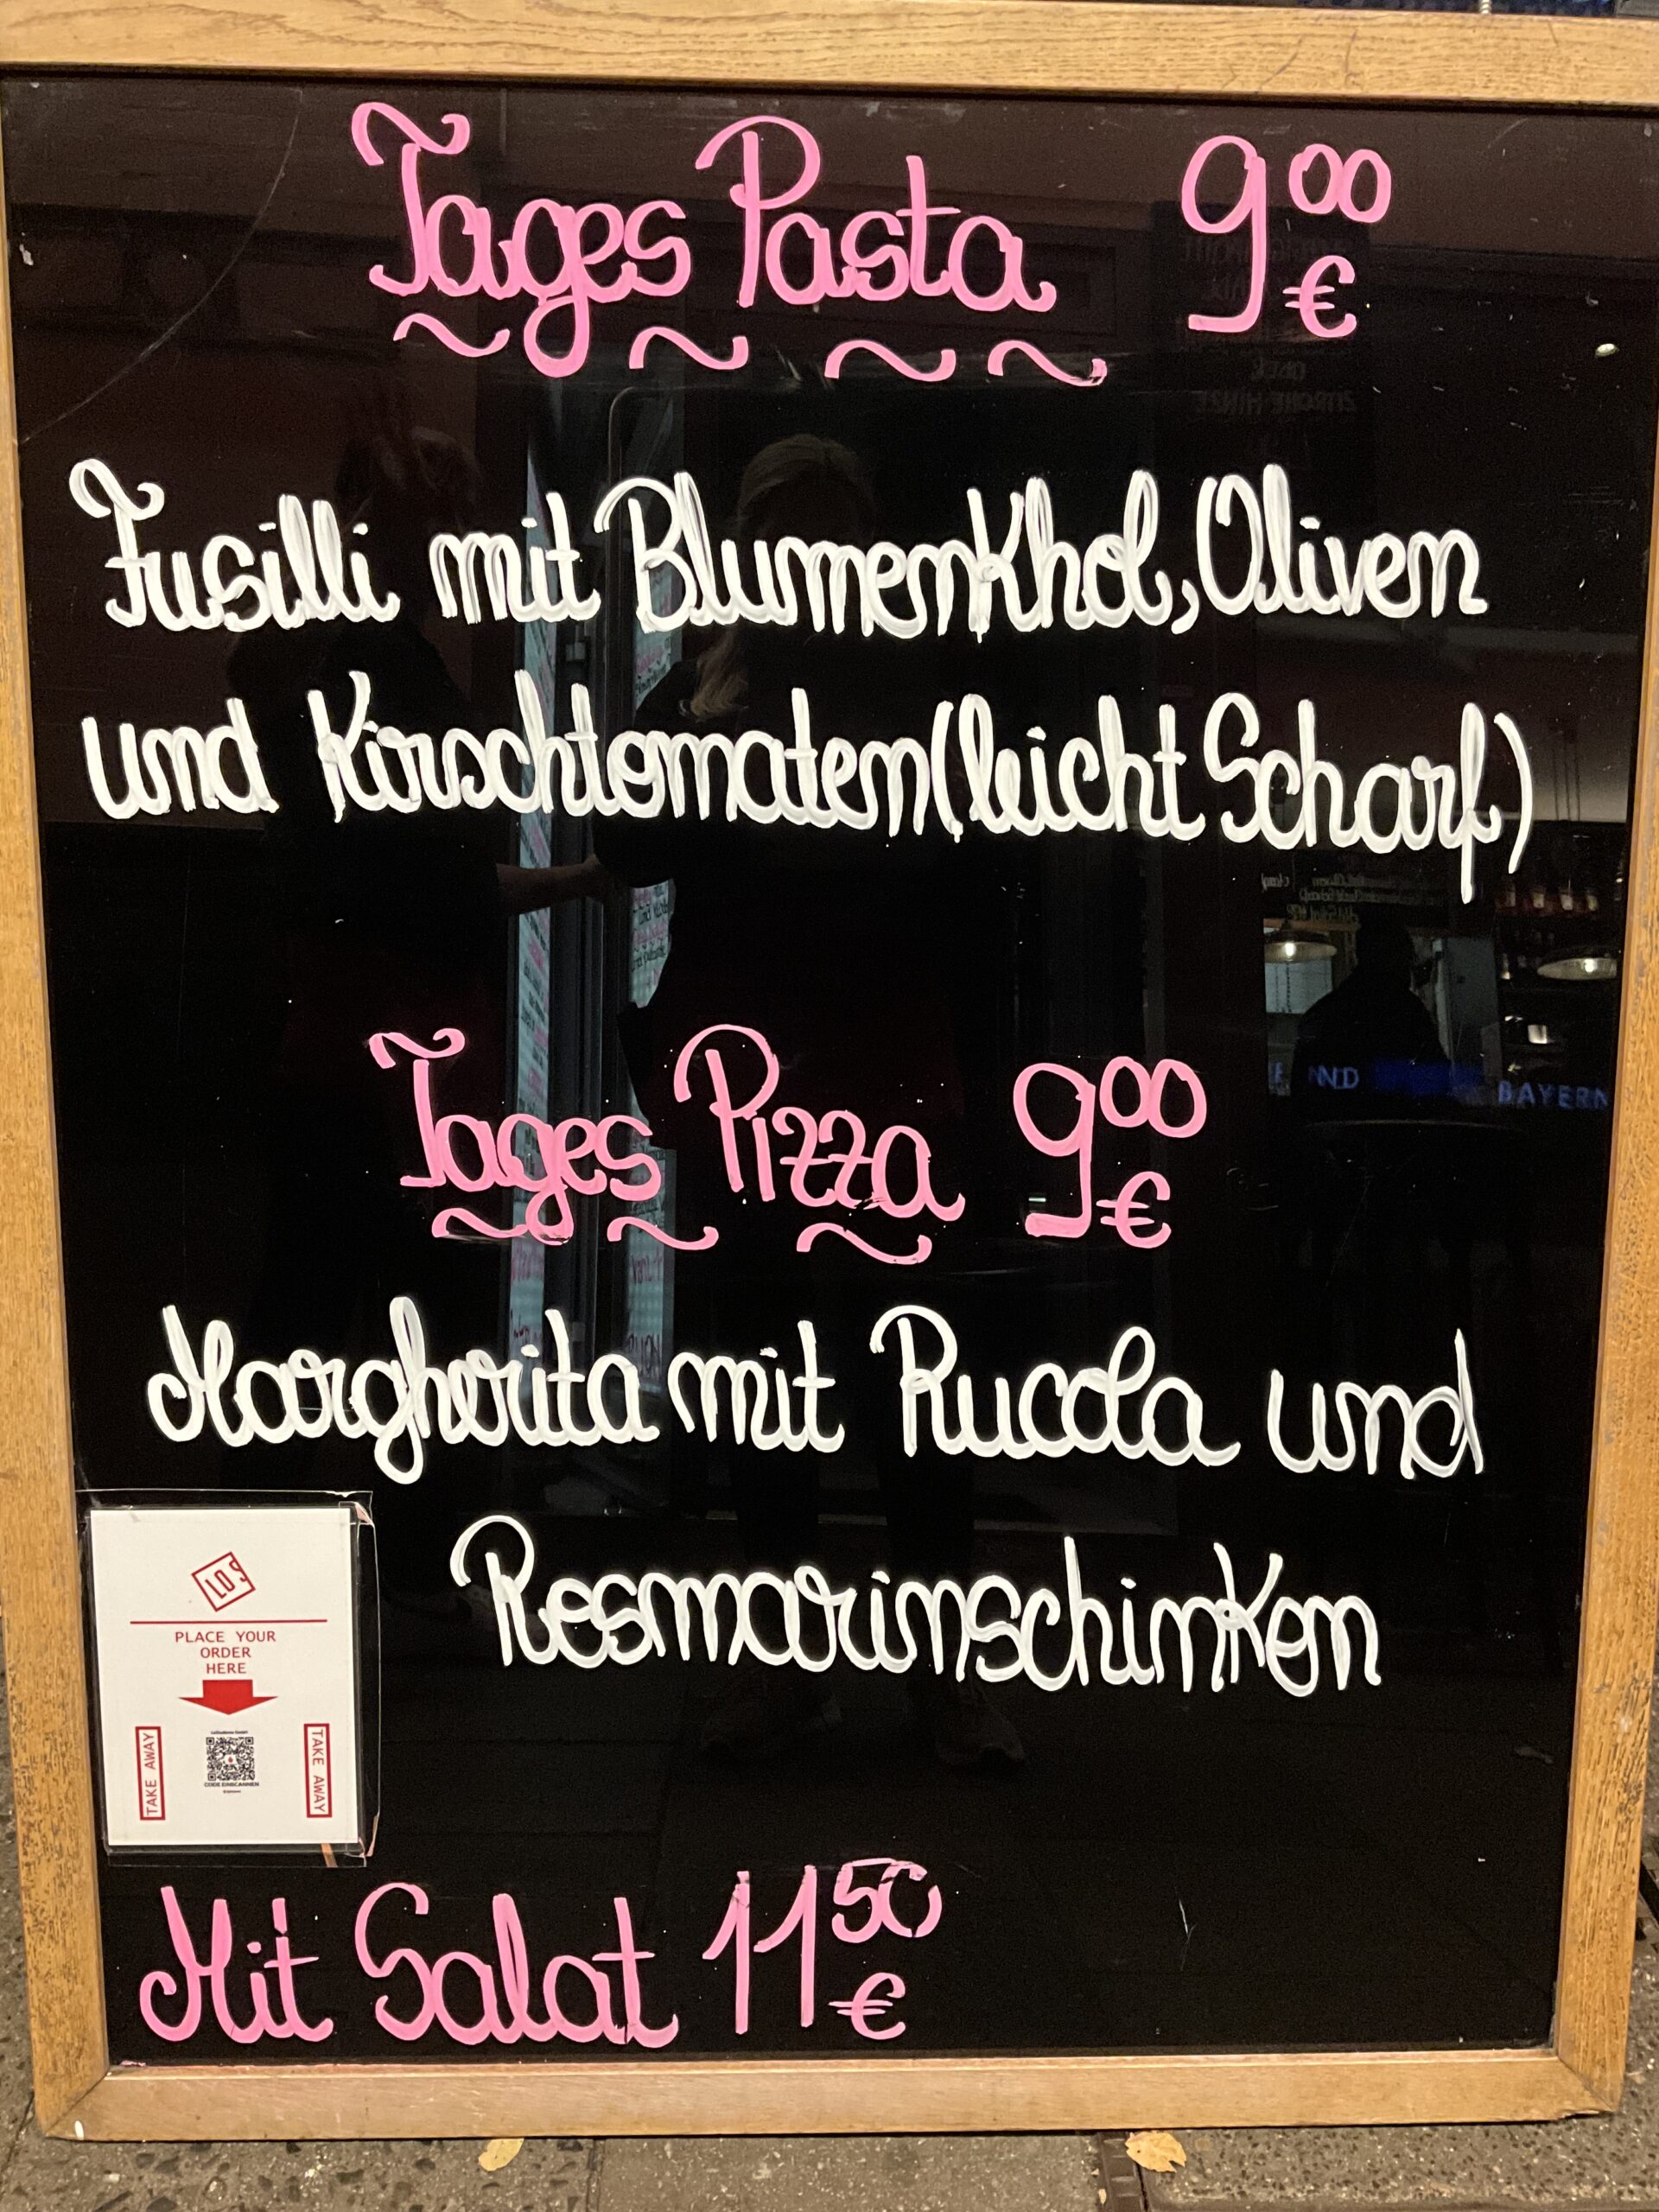 Tages Pasta 9⁰⁰ €
Fusilli mit Blumenkhol, Oliven
und Kirschtomaten (leicht Scharf)
Tages Pizza 9⁰⁰ €
Margherita mit Rucola und
Rosmarinschinken
LOS
PLACE YOUR
ORDER
HERE
TAKE AWAY
TAKE AWAY
CODE EINSCANNEN
Mit Salat 11⁵⁰ €
BAYERN